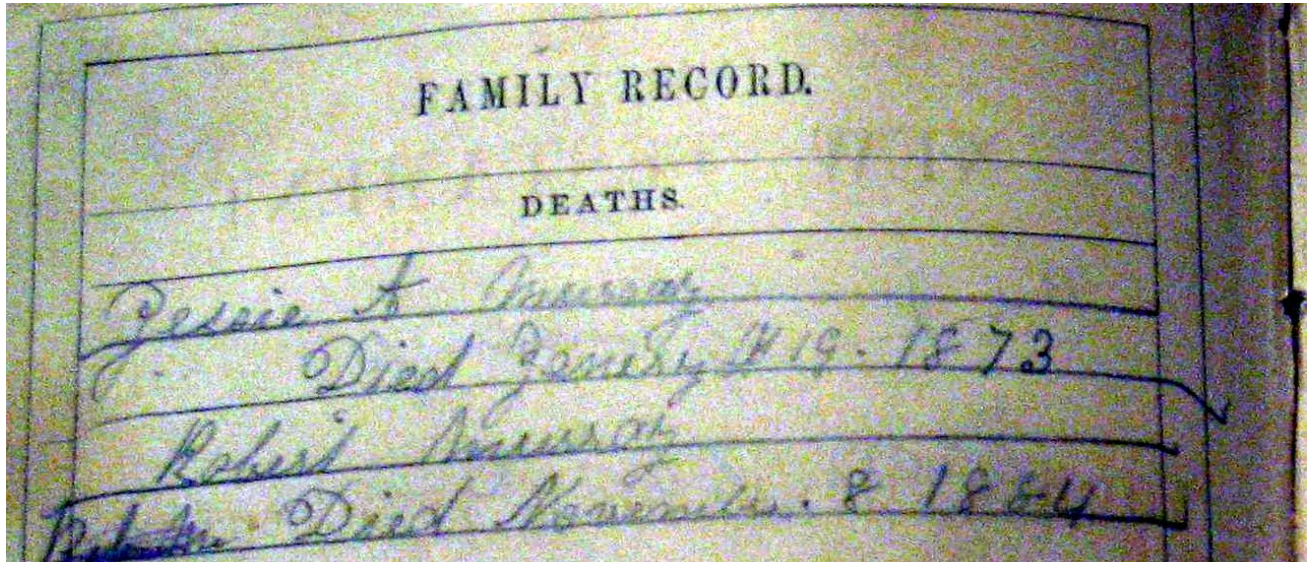 FAMILY RECORD.
DEATHS.
Jessie A Murray
Died Jenury 19. 1873
Robert Murray
Died November. 8 1884